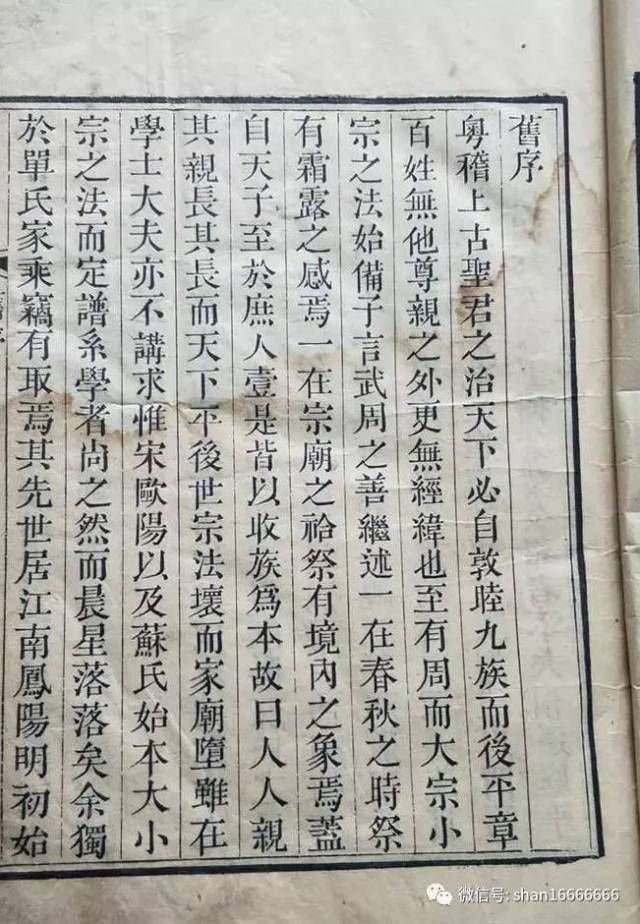 舊序
粵稽上古聖君之治天下必自敦睦九族而後平章
百姓無他尊親之外更無經緯也至有周而大宗小
宗之法始備子言武周之善繼述一在春秋之時祭
有霜露之感焉一在宗廟之祫祭有境內之象焉蓋
自天子至於庶人壹是皆以收族爲本故曰人人親
其親長其長而天下平後世宗法壞而家廟墮雖在
學士大夫亦不講求惟宋歐陽以及蘇氏始本大小
宗之法而定譜系學者尙之然而晨星落落矣余獨
於單氏家乘竊有取焉其先世居江南鳳陽明初始
微信号: shan16666666